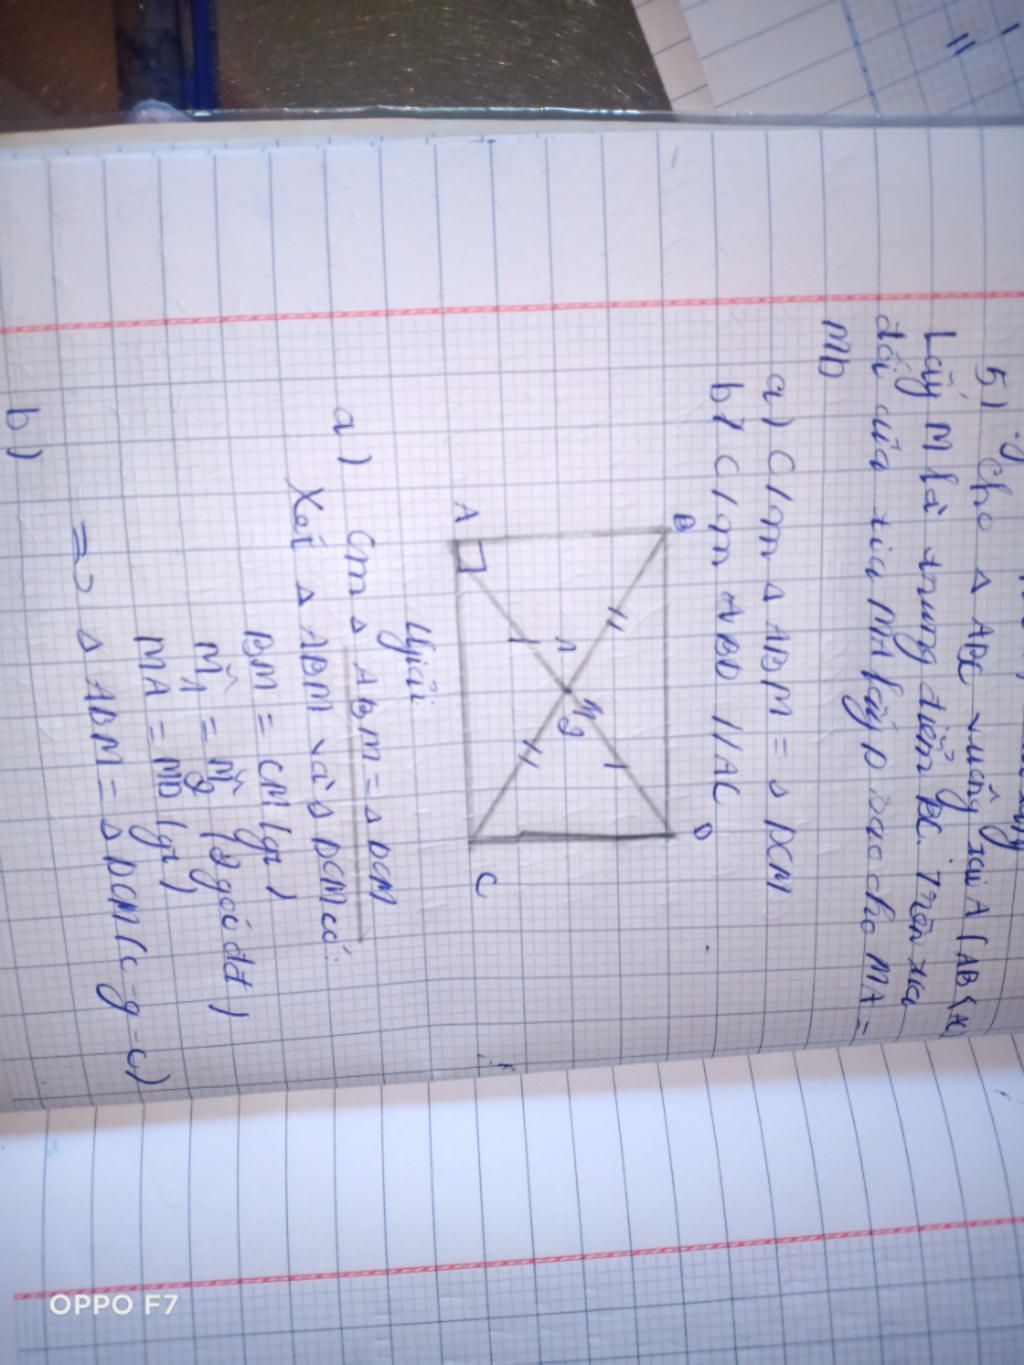 5) Cho Δ ABC vuông tại A (AB < AC
Lấy M là trung điểm BC. Trên tia
đối của tia MA lấy D sao cho MA =
MD
a) C/m Δ ABM = Δ DCM
b) C/m ABD // AC
B
D
1
M
2
A
C
Giải
a) Cm Δ ABM = Δ DCM
Xét Δ ABM và Δ DCM có:
BM = CM (gt)
M̂1 = M̂2 (2 góc đđ)
MA = MD (gt)
=> Δ ABM = Δ DCM (c-g-c)
b)
OPPO F7